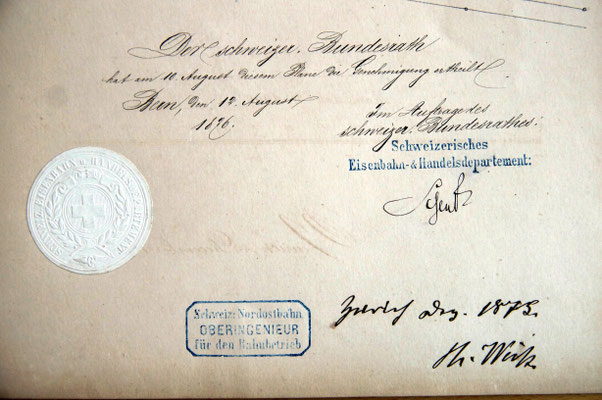 Der schweizer. Bundesrath
hat am 10 August diesem Plane die Genehmigung ertheilt.
Bern, den 12. August
1876.
Im Auftrage des
schweizer. Bundesrathes:
Schweizerisches
Eisenbahn-&Handelsdepartement:
Schenk
SCHWEIZ. EISENBAHN U. HANDELSDEPARTEMENT
Schweiz: Nordostbahn
OBERINGENIEUR
für den Bahnbetrieb
Zürich Dez. 1875.
Th. Weiß